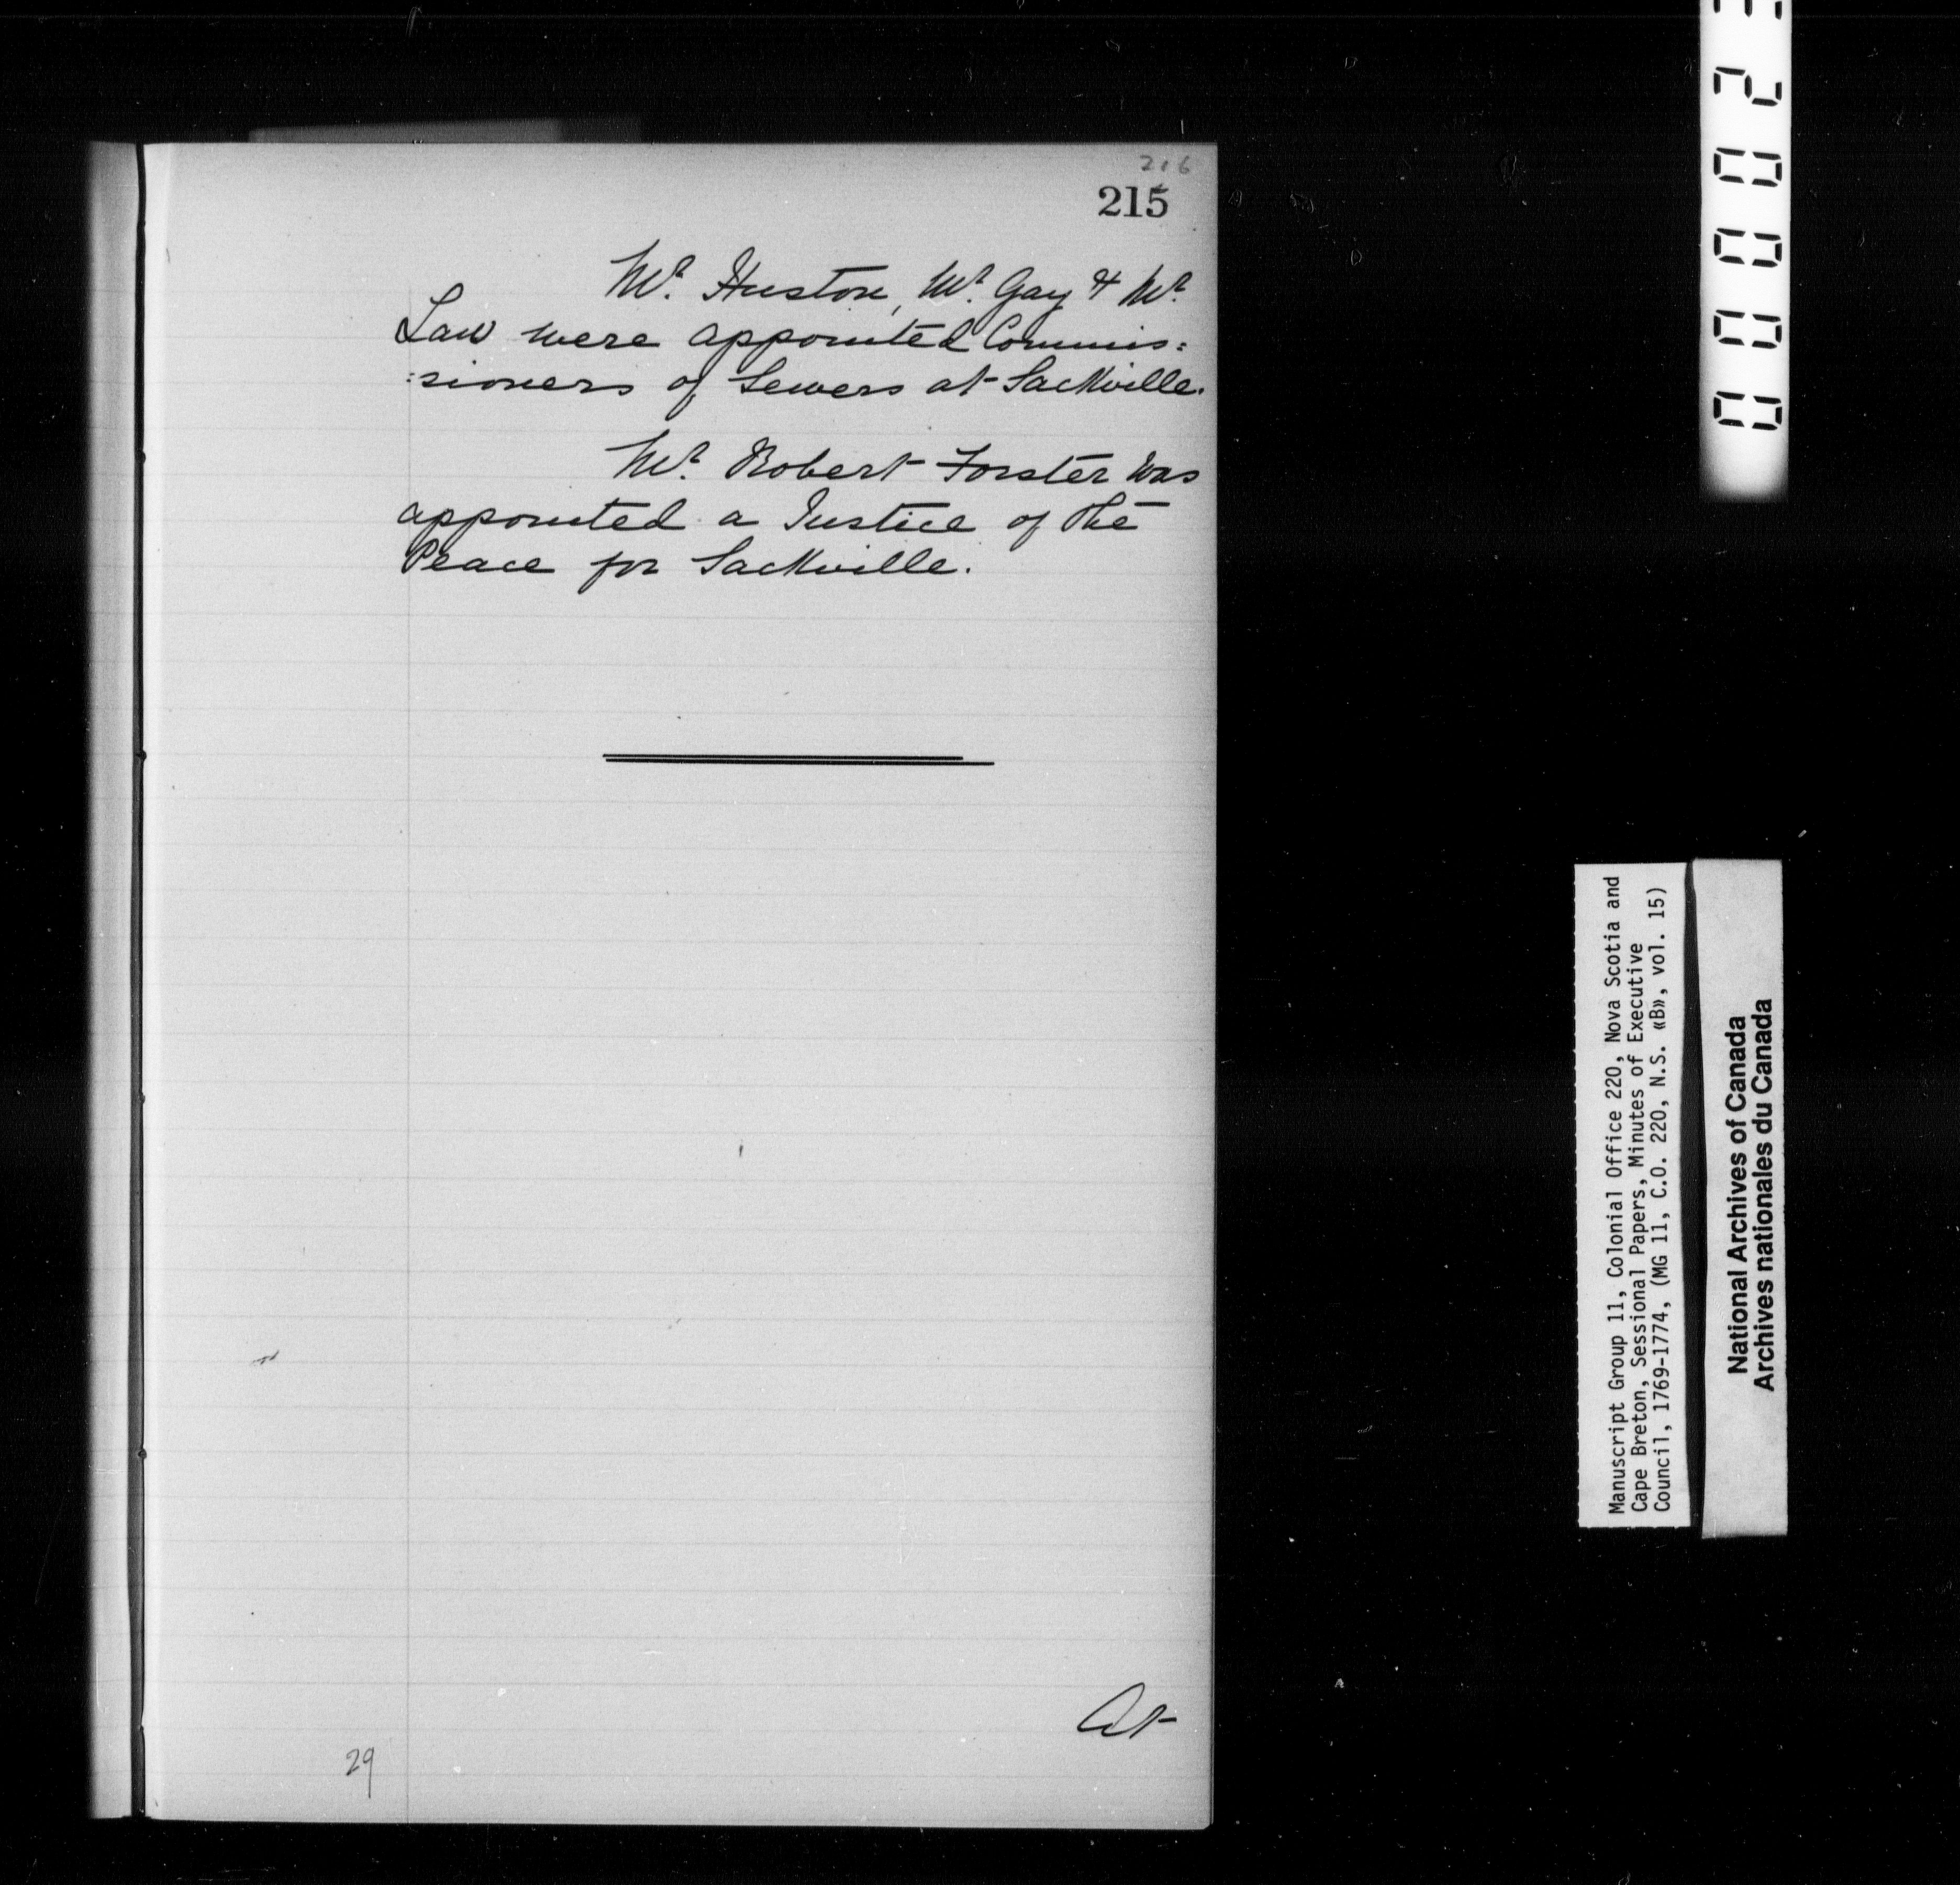 216
215
Mr. Huston, Mr. Gay & Mr.
Law were appointed Commis=
=sioners of Sewers at Sackville.
Mr. Robert Forster was
appointed a Justice of the
Peace for Sackville.
At
29
Manuscript Group 11, Colonial Office 220, Nova Scotia and
Cape Breton, Sessional Papers, Minutes of Executive
Council, 1769-1774, (MG 11, C.O. 220, N.S. «B», vol. 15)
National Archives of Canada
Archives nationales du Canada